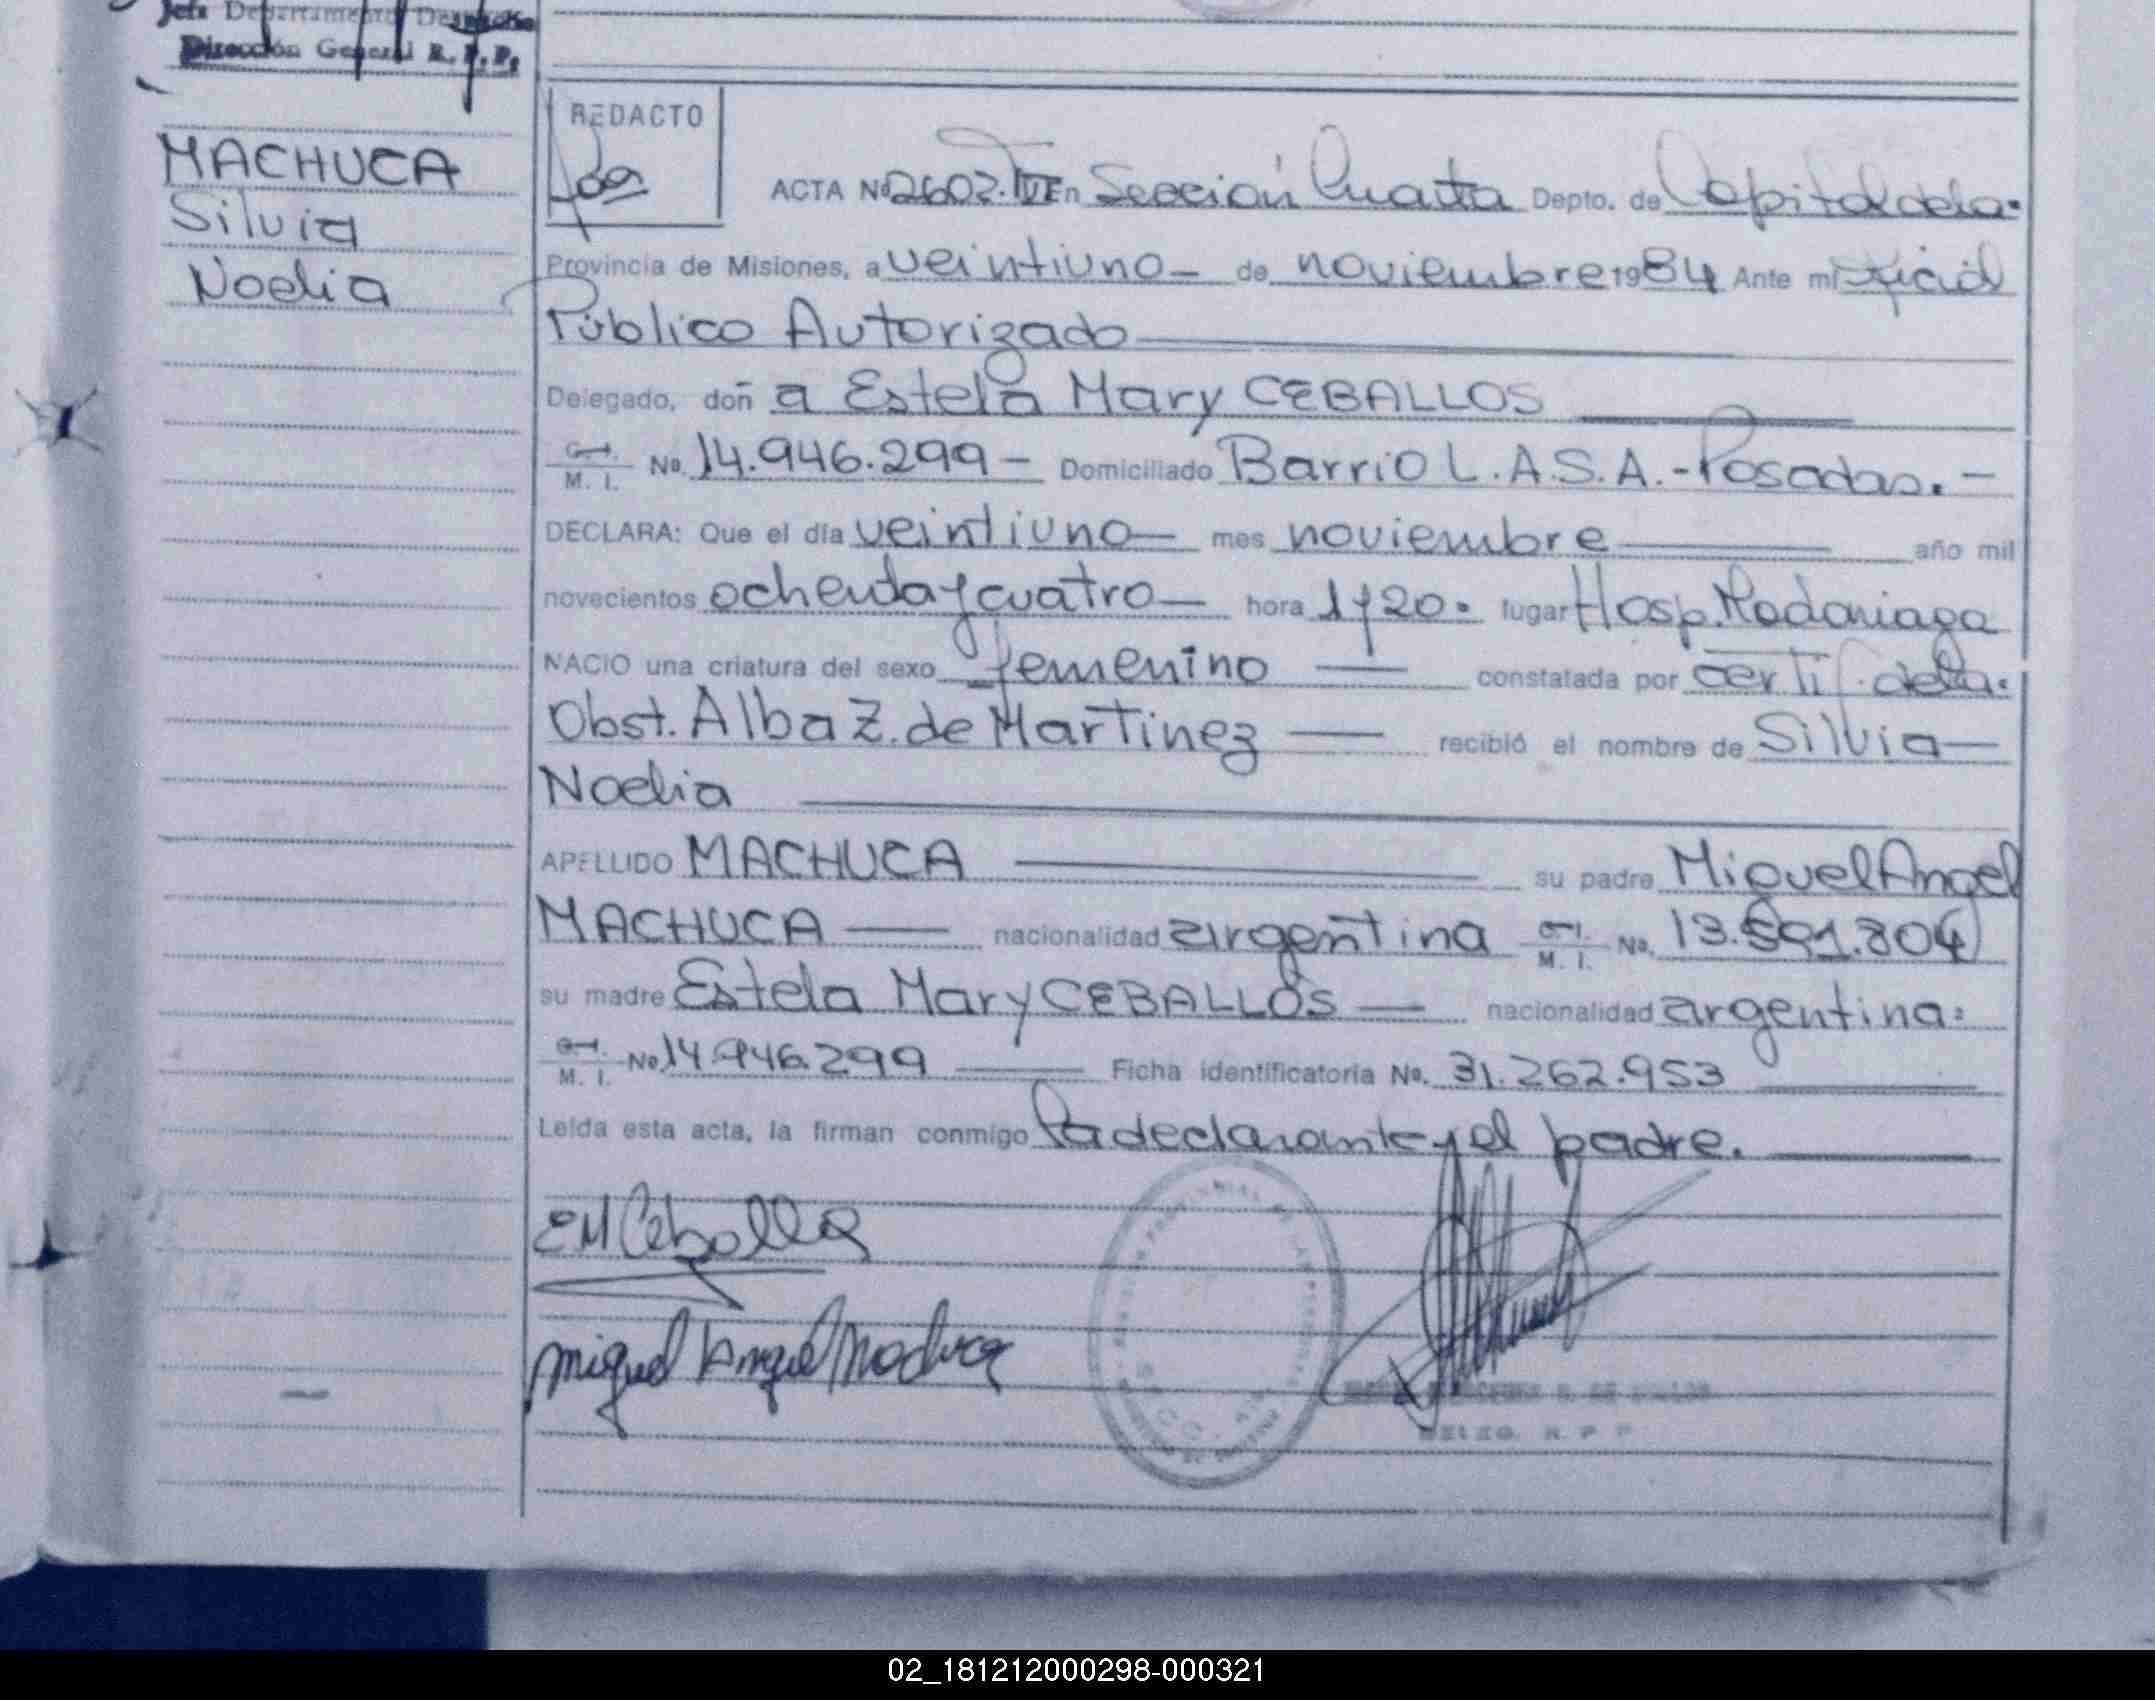 Jefe Departamento Despacho
Dirección General R. P. P.
MACHUCA
Silvia
Noelia
REDACTO
ACTA Nº 2602. IV En Sección Cuarta Depto. de Capital de la
Provincia de Misiones, a veintiuno de noviembre 1984 Ante mí Oficial
Público Autorizado
Delegado, doñ a Estela Mary CEBALLOS
C.I. M. I. No. 14.946.299 - Domiciliado Barrio L.A.S.A.- Posadas. -
DECLARA: Que el día veintiuno mes noviembre año mil
novecientos ochenta y cuatro hora 1 y 20. lugar Hosp. Madariaga
NACIO una criatura del sexo femenino constatada por certif. de la
Obst. Alba Z. de Martinez recibió el nombre de Silvia
Noelia
APELLIDO MACHUCA su padre Miguel Angel
MACHUCA nacionalidad argentina C.I. M. I. No. 13.591.804
su madre Estela Mary CEBALLOS nacionalidad argentina
C.I. M. I. No. 14.946.299 Ficha identificatoria No. 31.262.953
Leída esta acta, la firman conmigo la declarante y el padre.
EM Ceballos
Miguel Angel Machuca
DELEG. R. P. P.
02_181212000298-000321